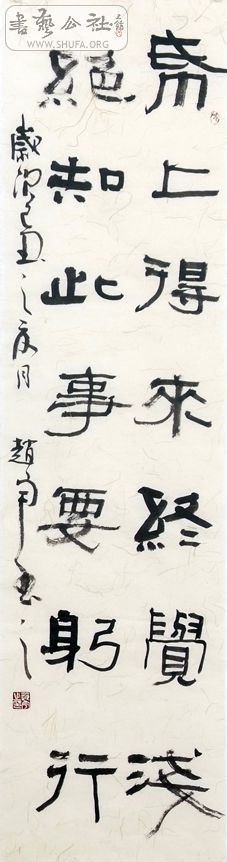 書藝公社
WWW.SHUFA.ORG
帋上得來終覺淺
絕知此事要躬行
歲次己丑之月 趙書之